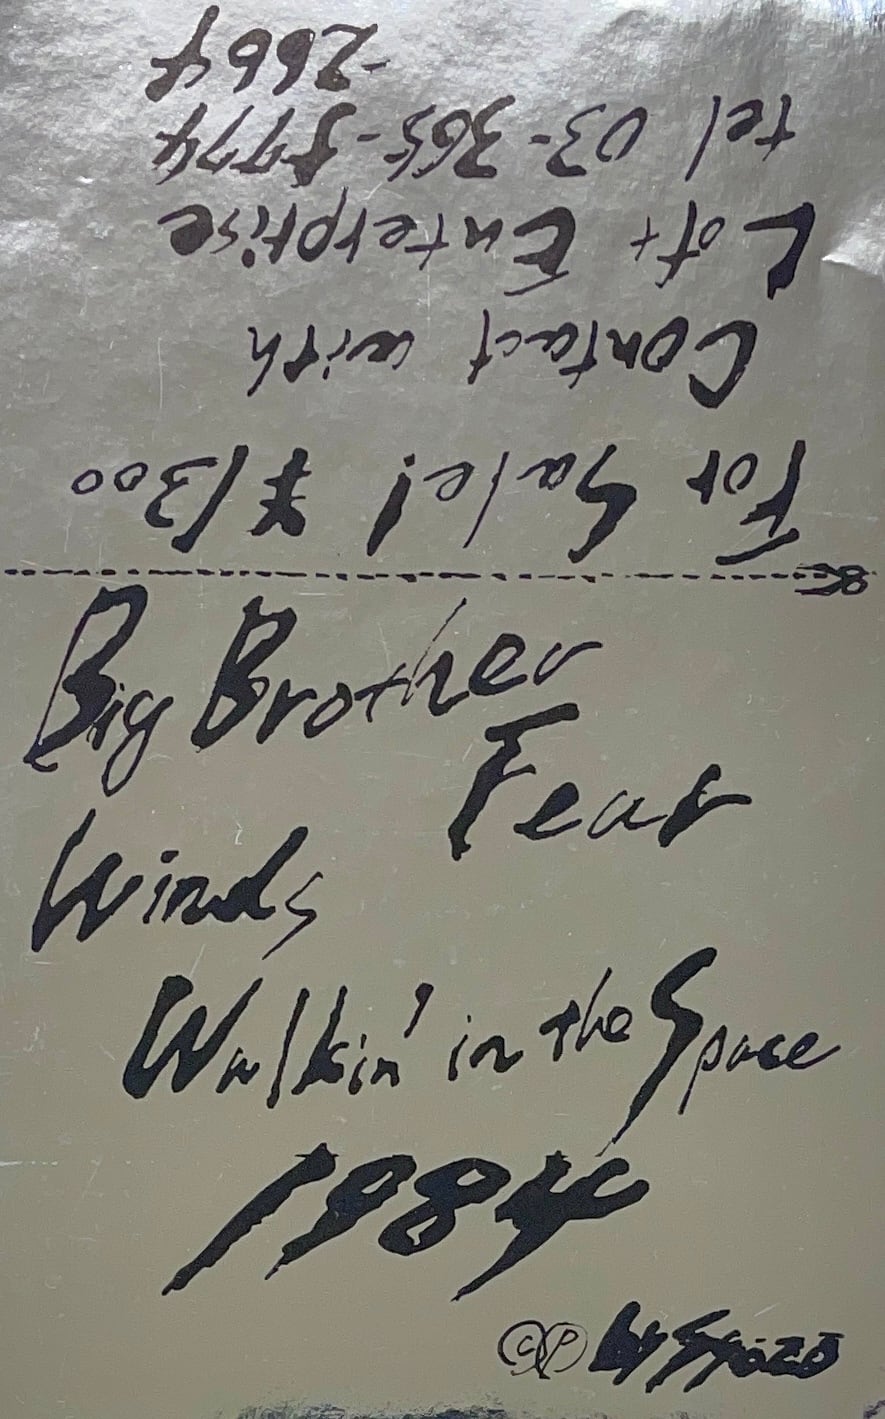 Big Brother
Fear
Winds
Walkin' in the Space
1984
©Ⓟ by Syozo
For Sale! ¥1300
Contact with
Loft Enterprise
tel 03-365-5774
-2664